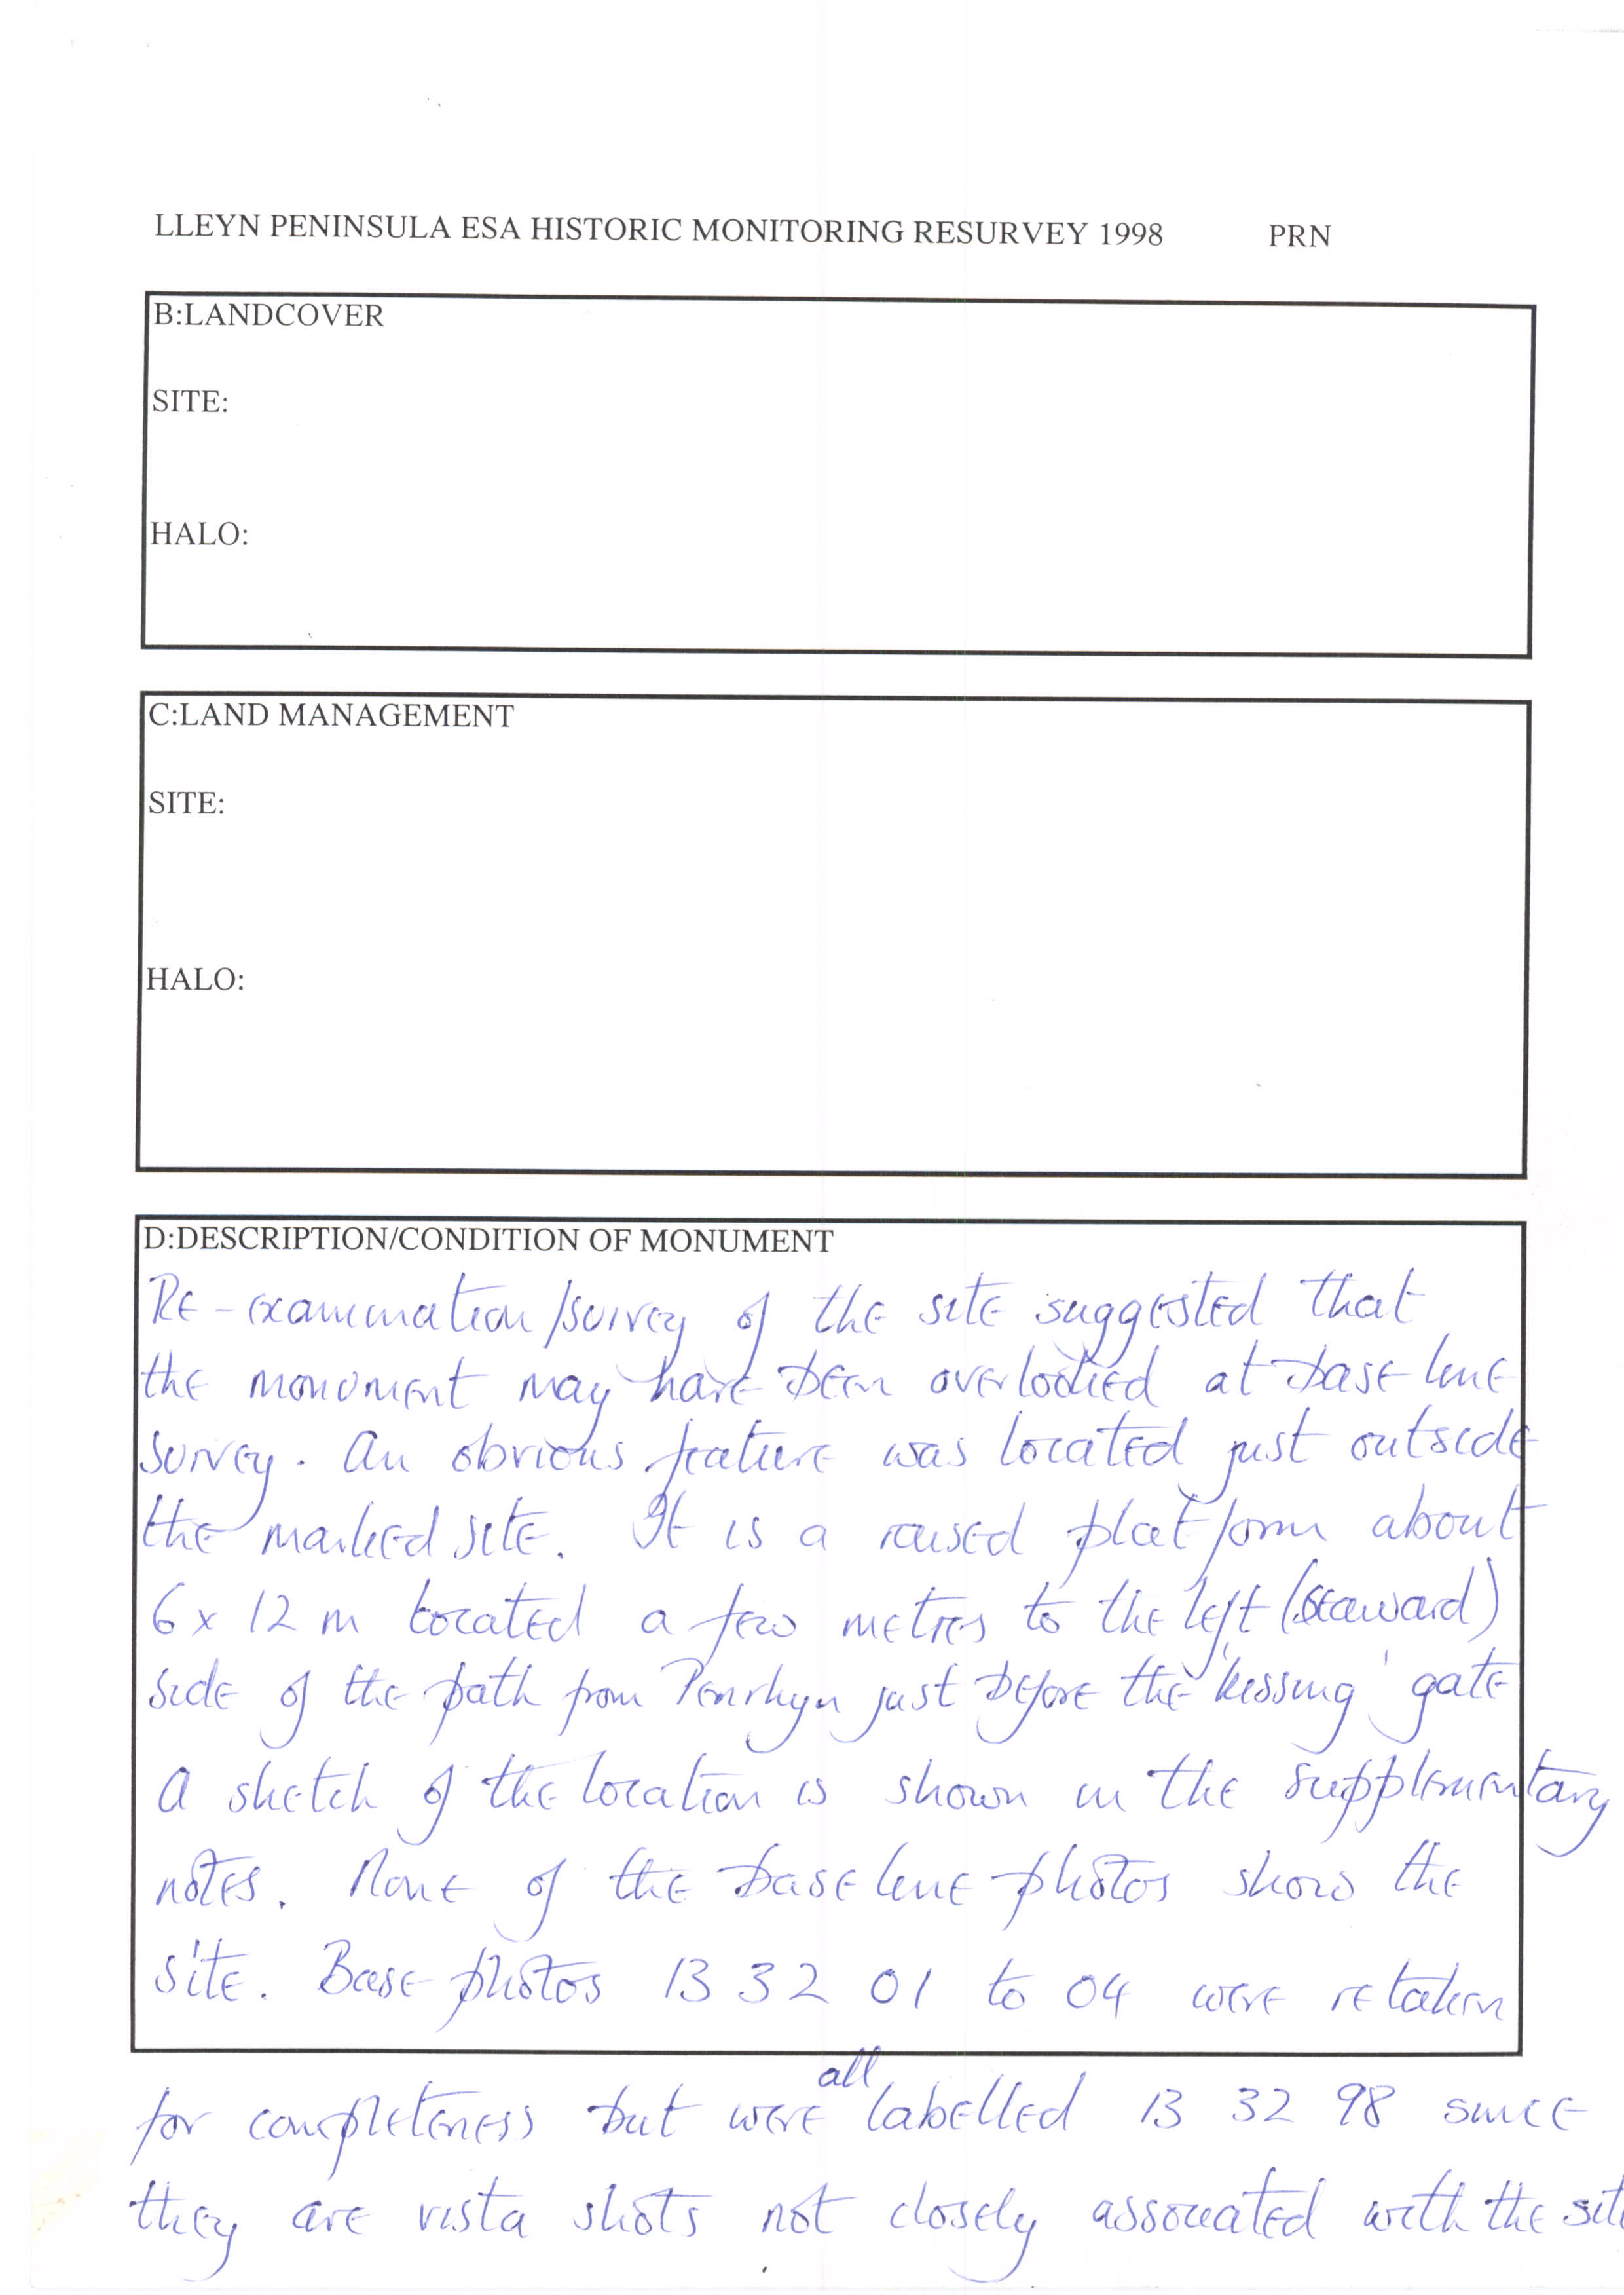 LLEYN PENINSULA ESA HISTORIC MONITORING RESURVEY 1998 PRN
B:LANDCOVER
SITE:
HALO:
C:LAND MANAGEMENT
SITE:
HALO:
D:DESCRIPTION/CONDITION OF MONUMENT
Re-examination/survey of the site suggested that
the monument may have been overlooked at base line
survey. An obvious feature was located just outside
the marked site. It is a raised platform about
6 x 12 m located a few metres to the left (seaward)
side of the path from Penrhyn just before the 'kissing' gate
A sketch of the location is shown in the supplementary
notes. None of the base line photos show the
site. Base photos 13 32 01 to 04 were retaken
for completeness but were all labelled 13 32 98 since
they are vista shots not closely associated with the sit